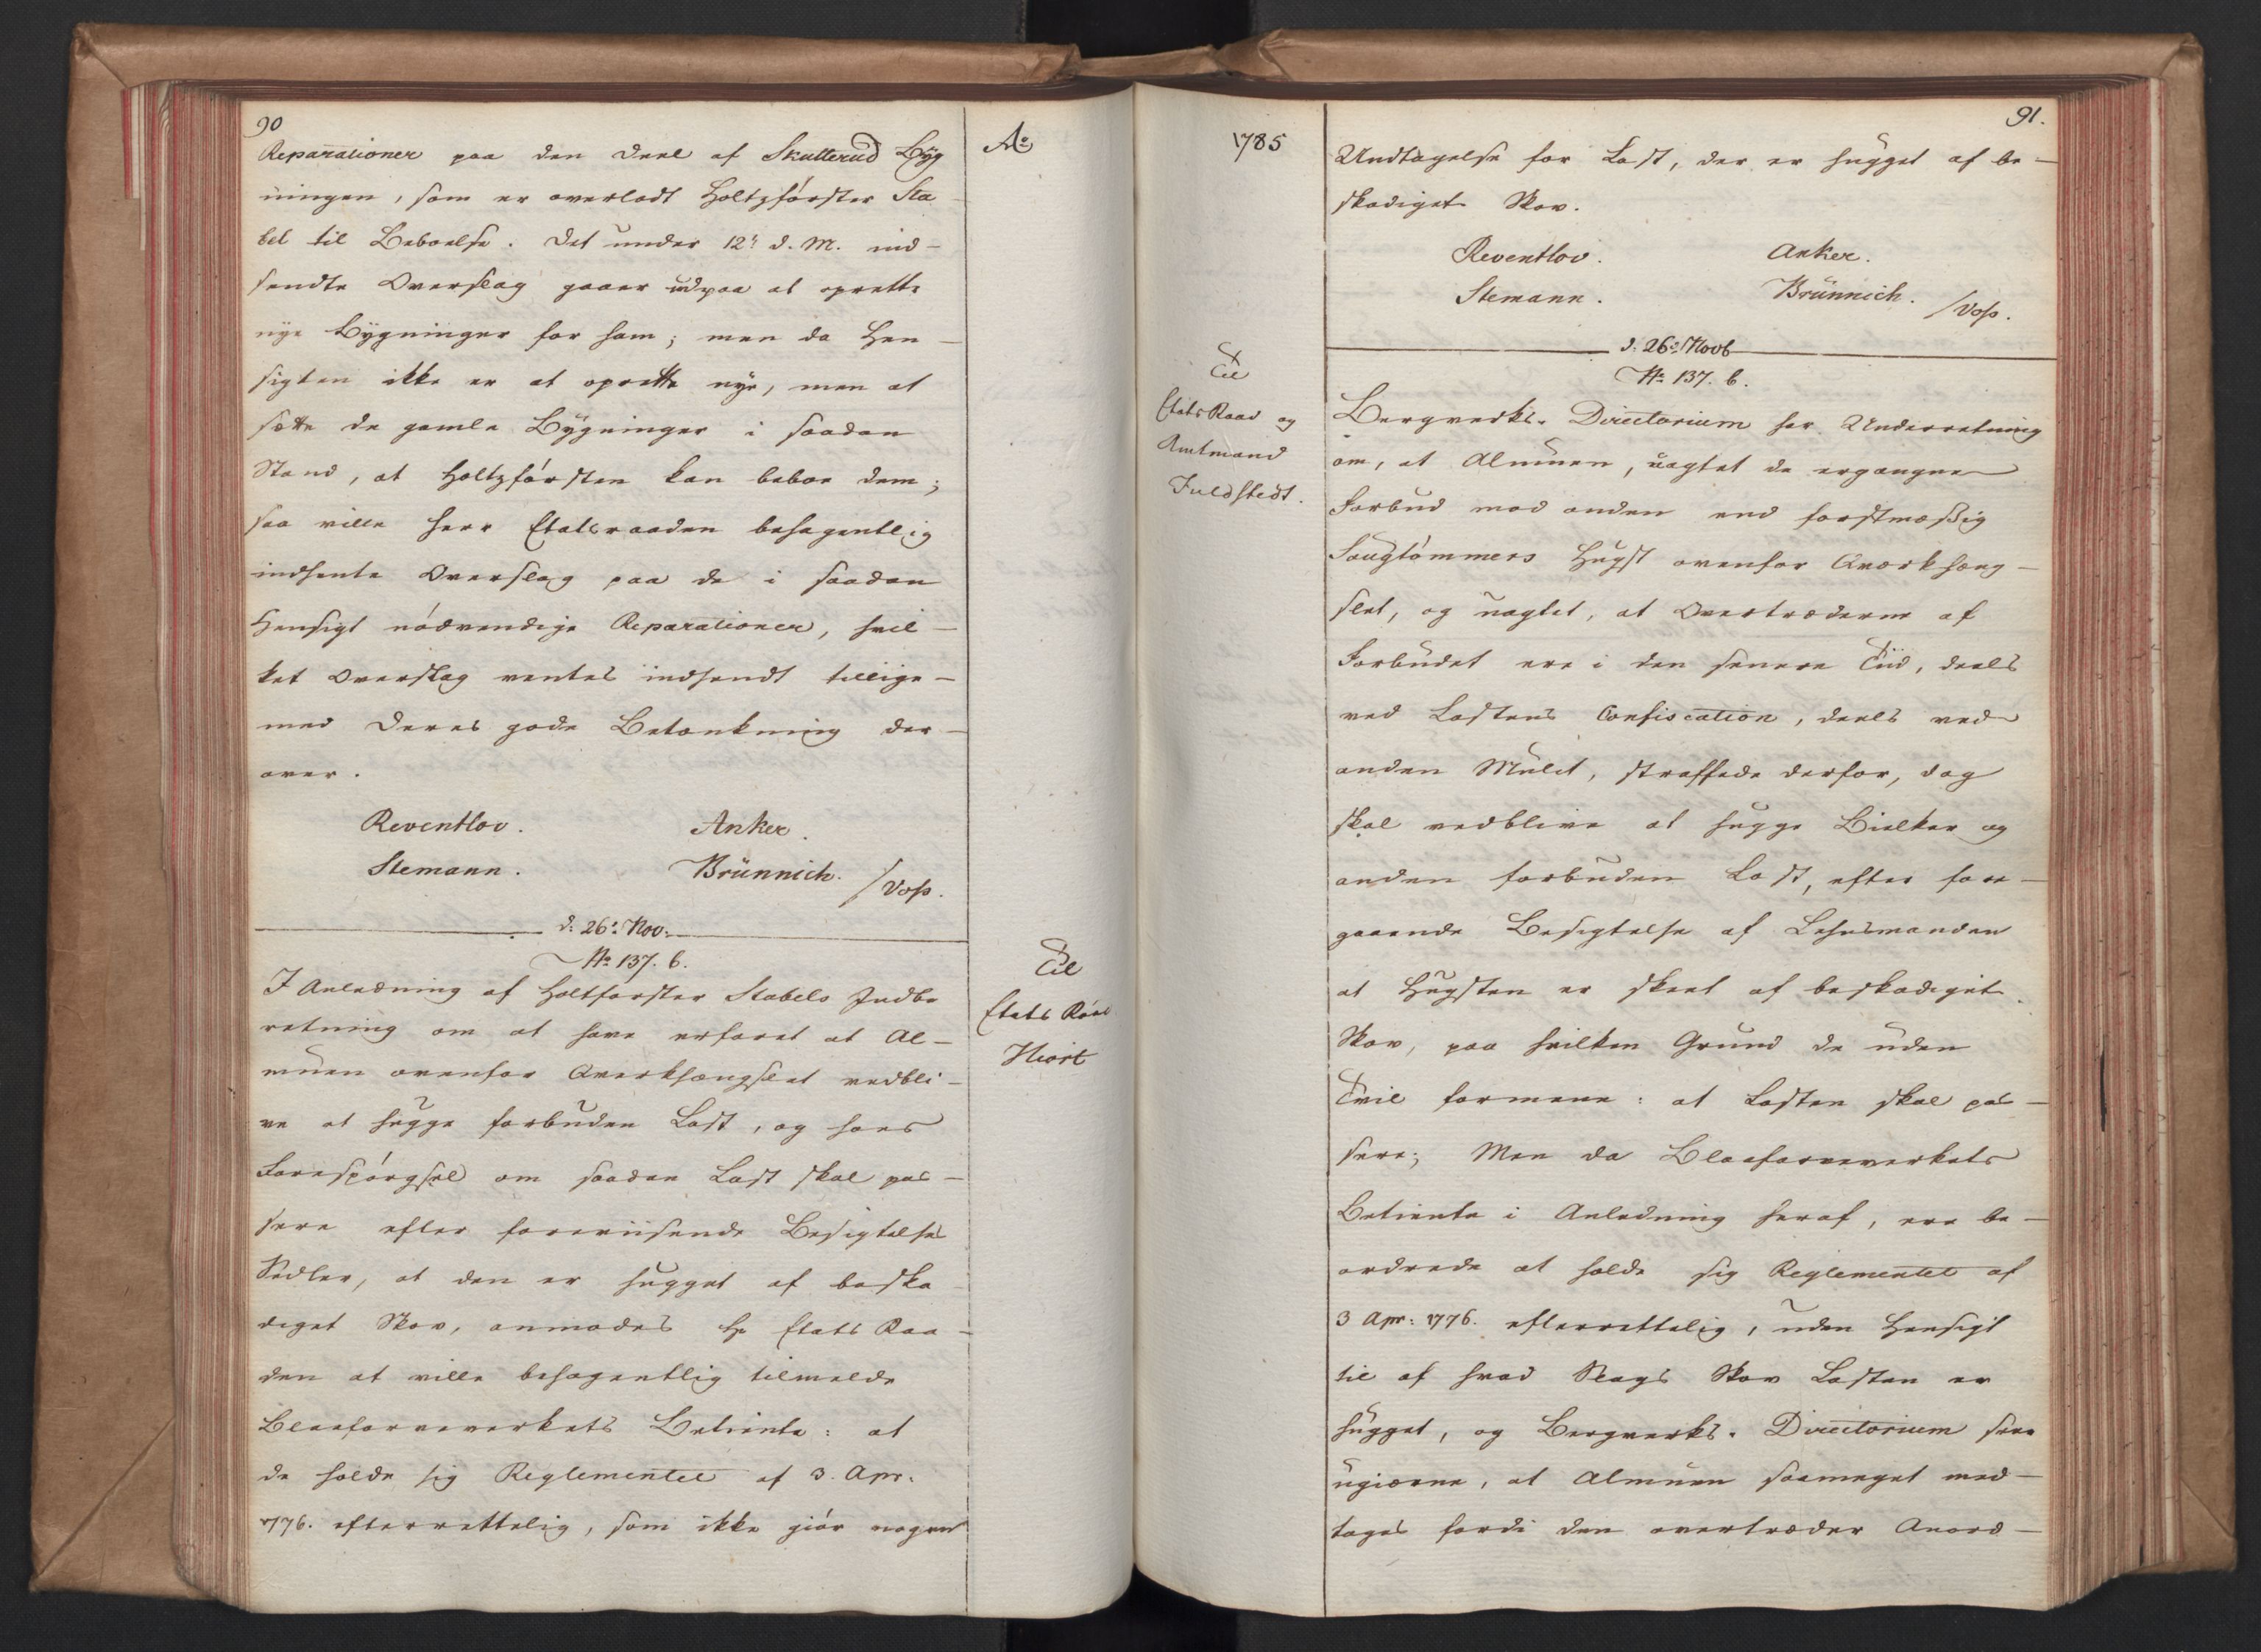 90
Aº
Reparationer paa den Deel af Skutterud Byg
ningen, som er overladt Holtzförster Sta
bel til Beboelse. Det under 12t d. M. ind-
sendte Overslag gaaer udpaa at oprette
nye Bygninger for ham; men da Hen-
sigten ikke er at oprette nye, men at
sætte de gamle Bygninger i saadan
Stand, at Holtzförsten kan beboe dem;
saa ville Herr Etatsraaden behagentlig
indhente Overslag paa de i saadan
Hensigt nödvendige Reparationer, hvil-
ket Overslag ventes indsendt tillige-
med Deres gode Betænkning der-
over.
Reventlov. Anker.
Stemann. Brünnich.
/Voss.
d: 26: Nov:
Nº 137. b.
Til
Etats Raad
Hiort
I Anledning af Holtforster Stabels Indbe
retning om at have erfaret at Al-
muen ovenfor Qværkhængslet vedbli-
ve at hugge forbuden Last, og hans
Forespörgsel om saadan Last skal pas-
sere efter foreviisende Besigtelses
Sedler, at den er hugget af beska
diget Skov, anmodes Hr Etats Raa-
den at ville behagentlig tilmelde
Blaafarveverkets Betiente: at
de holde sig Reglementet af 3. Apr.
1776. efterrettelig, som ikke giör nogen
1785
91.
Undtagelse for Last, der er hugget af be-
skadiget Skov.
Reventlov. Anker.
Stemann. Brünnich.
/Voss.
d: 26: Novb
Nº 137. b.
Til
Etats Raad og
Amtmand
Fuldstedt.
Bergverks-Directorium har Underretning
om, at Almuen, uagtet de ergangne
Forbud mod anden end forstmæssig
Saugtömmers Hugst ovenfor Qværkhæng-
slet, og uagtet, at Overtræderne af
Forbudet ere i den senere Tiid, deels
ved Lastens Confiscation, deels ved
anden Mulct, straffede derfor, dog
skal vedblive at hugge Bielker og
anden forbuden Last, efter fore-
gaaende Besigtelse af Lehnsmanden
at Hugsten er skeet af beskadiget
Skov, paa hvilken Grund de uden
Tvil formene: at Lasten skal pas-
sere; Men da Blaafarveverkets
Betiente i Anledning heraf, ere be-
ordrede at holde sig Reglementet af
3 Apr: 1776. efterrettelig, uden Hensigt
til af hvad Slags Skov Lasten er
hugget, og Bergverks-Directorium seer
ugierne, at Almuen saameget med-
tages fordi den overtræder Anord-